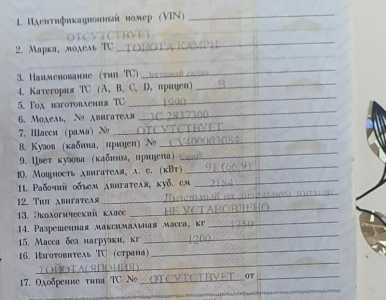 1. Идентификационный номер (VIN)
ОТСУТСТВУЕТ
2. Марка, модель ТС ТОЙОТА КАМРИ
3. Наименование (тип ТС)
4. Категория ТС (А, В, С, D, прицеп) В
5. Год изготовления ТС 1990
6. Модель, № двигателя 3С 2837300
7. Шасси (рама) № ОТСУТСТВУЕТ
8. Кузов (кабина, прицеп) №
9. Цвет кузова (кабины, прицепа)
10. Мощность двигателя, л. с. (кВт) 91 (66.9)
11. Рабочий объем двигателя, куб. см 2184
12. Тип двигателя
13. Экологический класс НЕ УСТАНОВЛЕНО
14. Разрешенная максимальная масса, кг
15. Масса без нагрузки, кг 1200
16. Изготовитель ТС (страна)
ТОЙОТА(ЯПОНИЯ)
17. Одобрение типа ТС № ОТСУТСТВУЕТ от